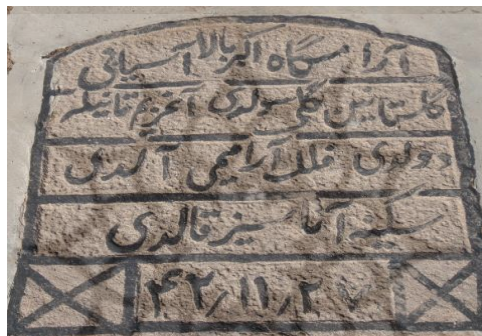 آرامگاه اکبر بالا آسیائی
گلستانین گلی سولدی آخریم قانیله
دولدی فلک آرامیمی آلدی
سکینه آنا سیز قالدی
۴۲٫۱۱٫۲۷